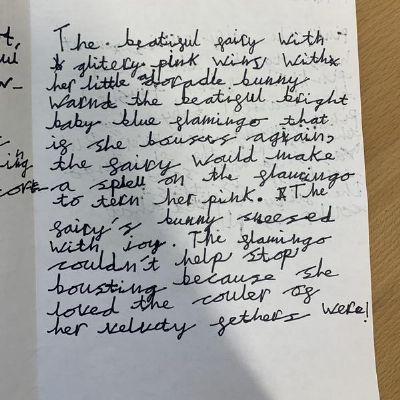 ing
The beatiful fairy with
glitery pink wins with
her little adoradle bunny
warnd the beatiful bright
baby blue flamingo that
if she bousts agiain,
the fairy would make
a spell on the flamingo
to tern her pink. The
fairy's bunny sneesed
with joy. The flamingo
couldn't help stop
bousting because she
loved the couler of
her velvety fethers were!